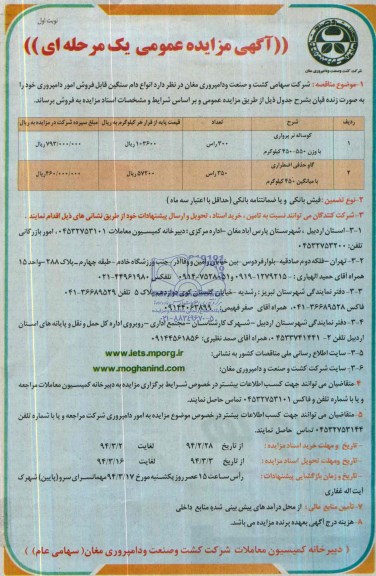 نوبت اول
شرکت کشت و صنعت و دامپروری مغان
((آگهی مزایده عمومی یک مرحله ای))
۱-موضوع مناقصه: شرکت سهامی کشت و صنعت ودامپروری مغان در نظر دارد انواع دام سنگین قابل فروش امور دامپروری خود را
به صورت زنده قپان بشرح جدول ذیل از طریق مزایده عمومی و بر اساس شرایط و مشخصات اسناد مزایده به فروش برساند.
ردیف شرح تعداد قیمت پایه از قرار هر کیلوگرم به ریال مبلغ سپرده شرکت در مزایده به ریال
۱ گوساله نر پرواری با وزن ۵۵۰-۴۵۰ کیلوگرم ۳۰۰ راس ۱۰۳۶۰۰ریال ۷۹۳/۰۰۰/۰۰۰
گاو حذفی اضطراری با میانگین ۴۵۰ کیلوگرم ۳۵۰ راس ۵۷۴۰۰ریال ۴۶۰/۰۰۰/۰۰۰ریال
۲-نوع تضمین :فیش بانکی و یا ضمانتنامه بانکی (حداقل با اعتبار سه ماه)
۳-شرکت کنندگان می توانند نسبت به تامین ، خرید اسناد ، تحویل و ارسال پیشنهادات خود از طریق نشانی های ذیل اقدام نمایند .
۳-۱-استان اردبیل ، شهرستان پارس آباد مغان -اداره مرکزی :دبیرخانه کمیسیون معاملات ۰۴۵۳۲۷۵۳۱۰۱ امور بازرگانی
تلفن: ۰۴۵۳۲۷۵۳۲۰۰
۳-۲-تهران -فلکه دوم صادقیه -بلوار فردوس -بین خیابان رامین و وفاآذر -جنب ورزشگاه خادم - طبقه چهارم-پلاک ۲۸۸-واحد ۱۵
همراه آقای حمید الهیاری :۰۹۱۹-۱۲۷۹۲۱۵ و ۰۹۱۴-۷۵۳۸۰۵۱ تلفکس ۰۲۱-۴۴۹۶۱۹۸۰
۳-۳-دفتر نمایندگی شهرستان تبریز : رشدیه -خیابان گلستان کوی دوازدهم پلاک ۵ تلفن ۳۶۶۸۹۵۲۹-۰۴۱
فاکس ۳۶۶۸۹۵۲۸-۰۴۱ همراه آقای صفر فهیمی ۰۹۱۴۴۰۶۲۸۹۹
۳-۴-دفتر نمایندگی شهرستان اردبیل -شهرک کارشناسان - مجتمع اداری -روبروی اداره کل حمل و نقل و پایانه های استان
اردبیل تلفن ۲-۰۴۵۳۳۷۴۱۴۴۱ ، همراه آقای صمد نظیری: ۰۹۱۴۴۵۶۱۸۵۶
۳-۵-سایت اطلاع رسانی ملی مناقصات کشور به نشانی: www.iets.mporg.ir
۳-۶-سایت شرکت کشت و صنعت و دامپروری مغان: www.moghanind.com
۴ متقاضیان می توانند جهت کسب اطلاعات بیشتر در خصوص شرایط برگزاری مزایده به دبیرخانه کمیسیون معاملات مراجعه
و یا با شماره تلفن و فاکس ۰۴۵۳۲۷۵۳۱۰۱ تماس حاصل نمایند.
۵ متقاضیان می توانند جهت کسب اطلاعات بیشتر در خصوص موضوع مزایده به امور دامپروری شرکت مراجعه و یا با شماره تلفن
۰۴۵۳۲۷۵۳۱۴۴ تماس حاصل نمایند.
- تاریخ و مهلت خرید اسناد مزایده : از تاریخ ۹۴/۲/۲۸ لغایت ۹۴/۳/۲
- تاریخ ومهلت تحویل اسناد مزایده : از تاریخ ۹۴/۳/۳ لغایت ۹۴/۳/۱۶
- تاریخ و زمان بازگشایی پیشنهادات: رأس ساعت ۱۵ عصر روز یکشنبه مورخ ۹۴/۳/۱۷ مهمانسرای سرو (پایین) شهرک
آیت اله غفاری
۷- تأمین منابع مالی : از محل درآمد های پیش بینی شده منابع داخلی
۸ هزینه درج آگهی بعهده برنده مزایده می باشد.
( دبیرخانه کمیسیون معاملات شرکت کشت وصنعت ودامپروری مغان( سهامی عام) )